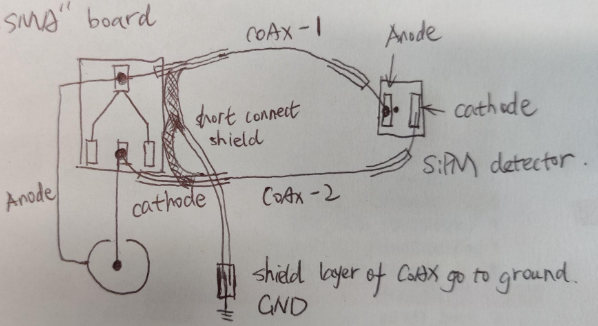 SMA" board
COAX-1
Anode
cathode
short connect
shield
SiPM detector.
Anode
cathode
COAX-2
shield layer of COAX go to ground.
GND